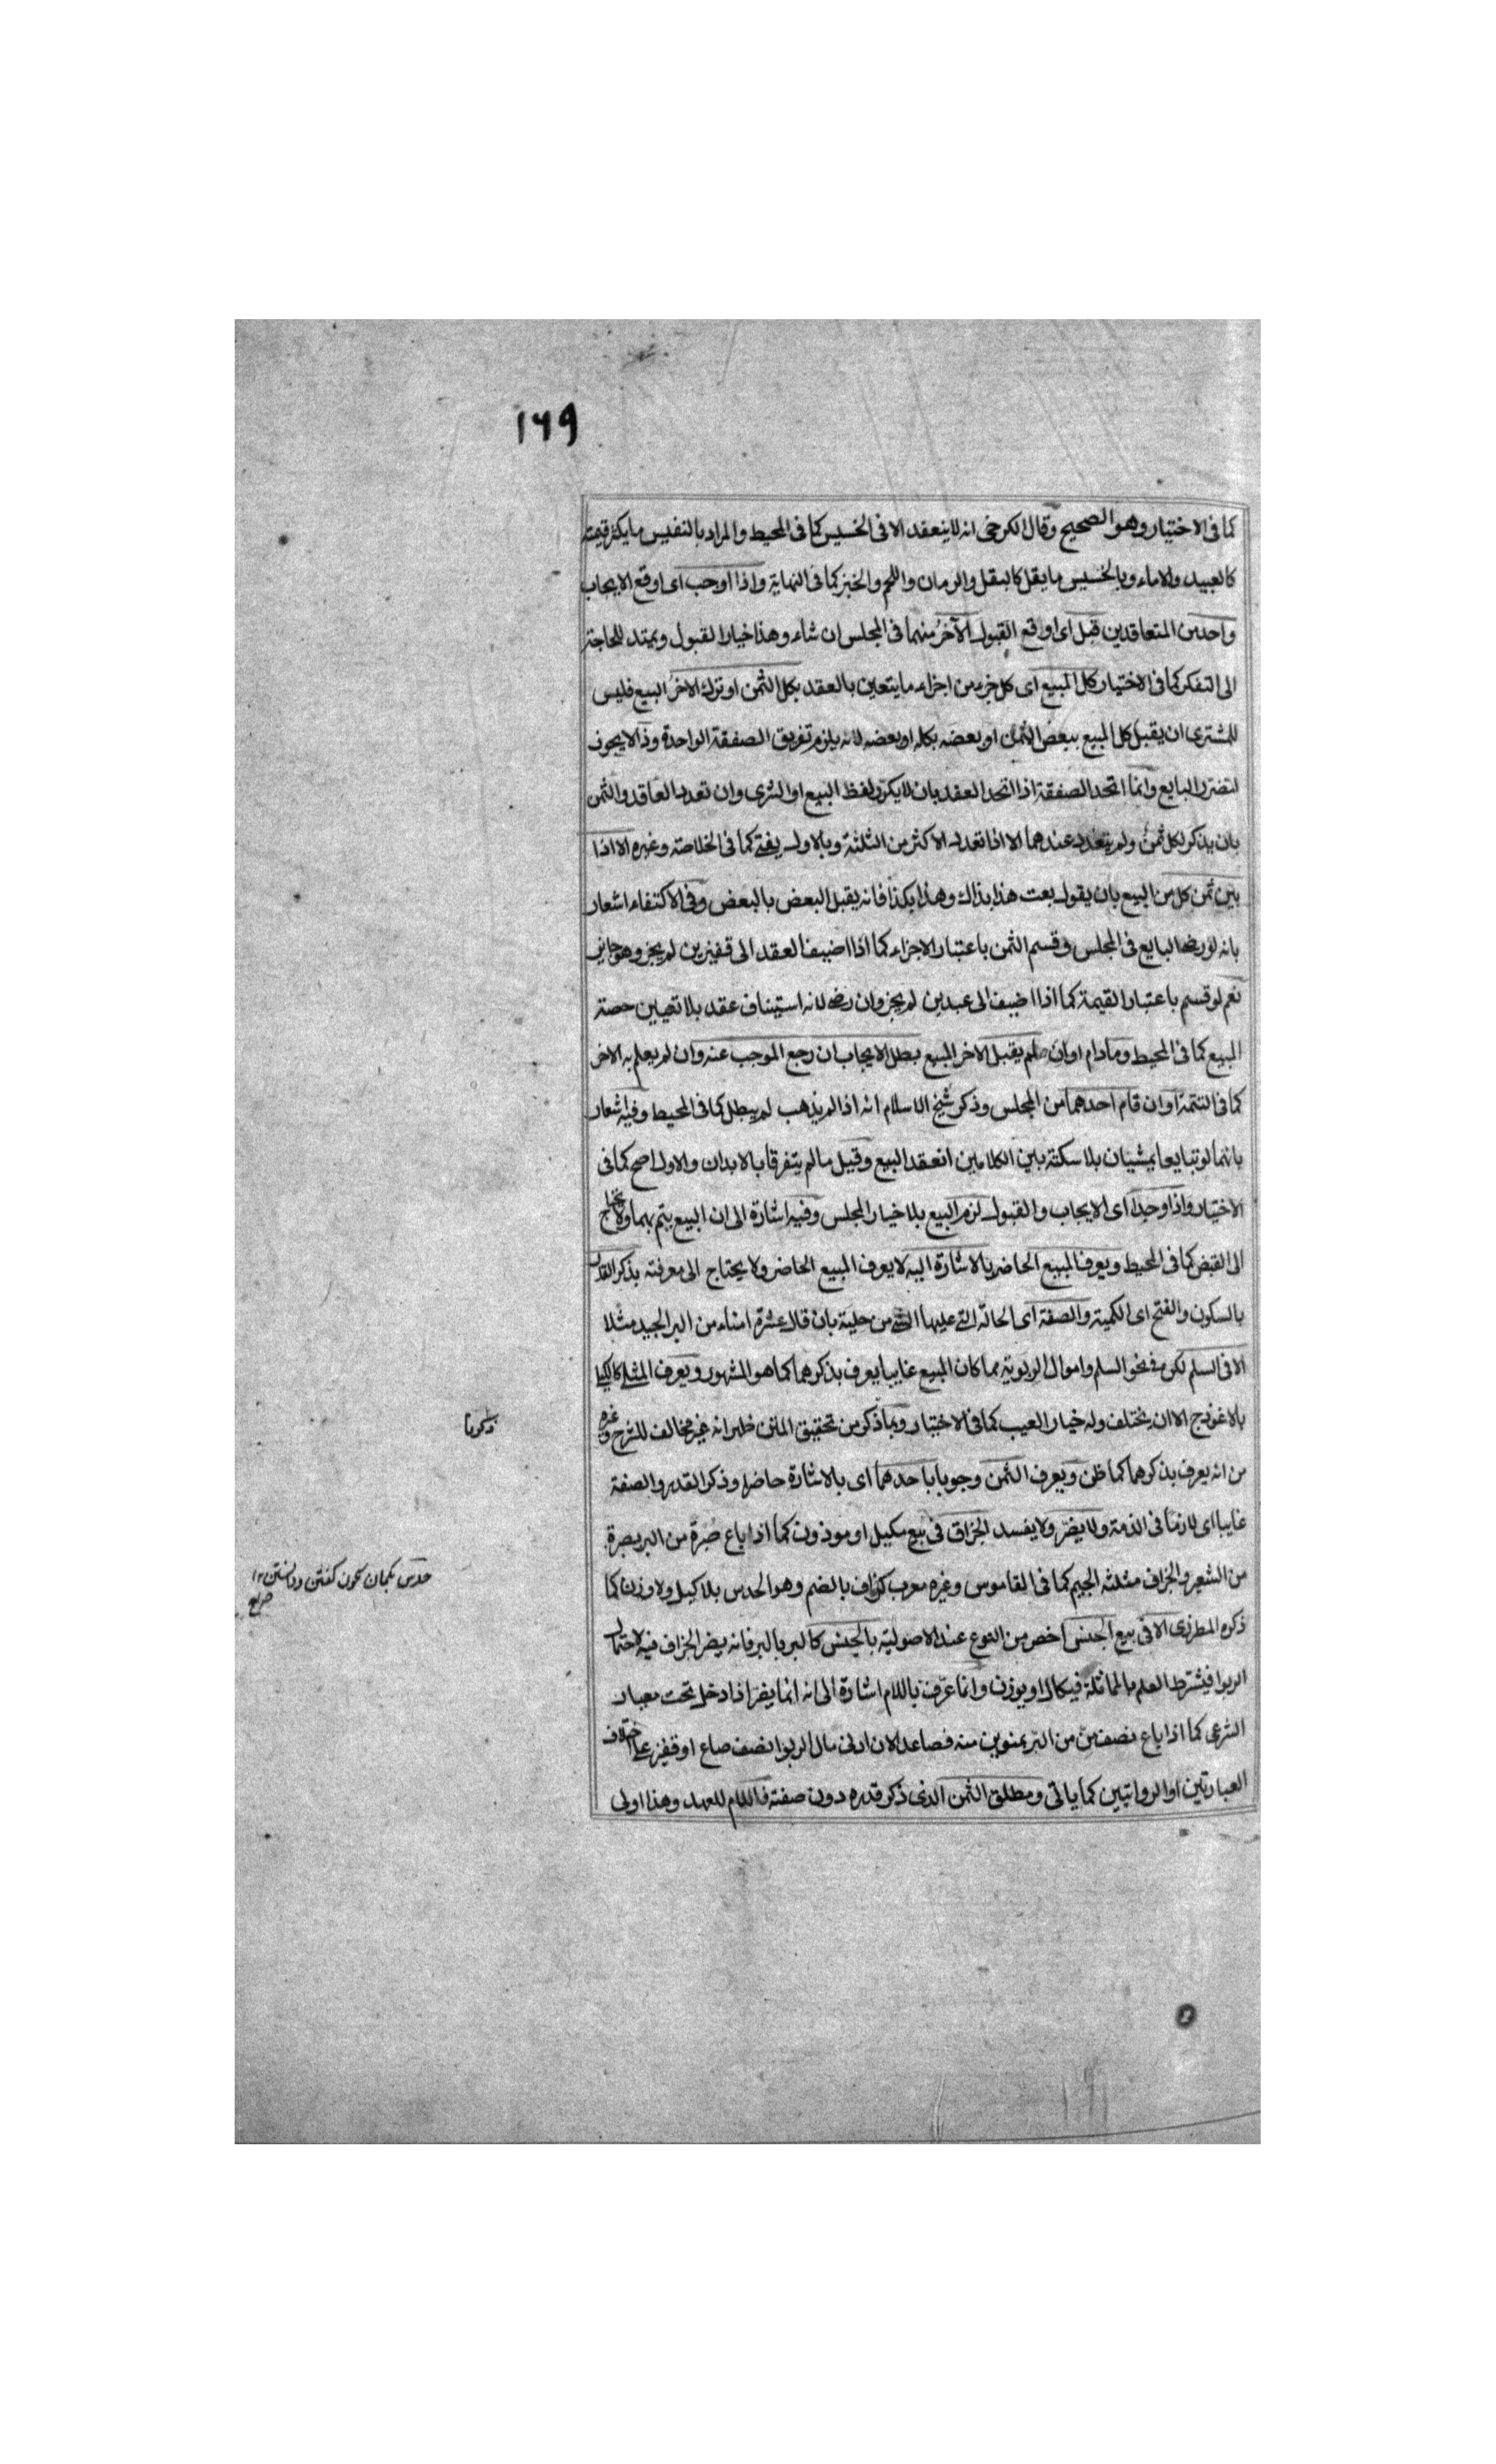 ١٦٩
كما فى الاختيار وهو الصحيح وقال الكرخى انه لا ينعقد الا فى الخسيس كما فى المحيط والمراد بالنفيس ما يكثر قيمته
كالعبيد والاماء وبالخسيس ما يقل كالبقل والرمان واللحم والخبز كما فى النهاية واذا اوجب اى اوقع الايجاب
واحد من المتعاقدين قبل اى اوقع القبول الآخر منهما فى المجلس ان شاء وهذا خيار القبول ويمتد للحاجة
الى التفكر كما فى الاختيار كل المبيع اى كل جزء من اجزاء ما يتعين بالعقد بكل الثمن او ترك الاخر البيع فليس
للمشترى ان يقبل كل المبيع ببعض الثمن او بعضه بكله او بعضه لانه يلزم تفريق الصفقة الواحدة وذا لا يجوز
لتضرر البايع وانما اتحد الصفقة اذا اتحد العقد بان لا يكرر لفظ البيع او الشرى وان تعدد العاقد والثمن
بان يذكر لكل ثمن ولم يتعدد عندهما الا اذا تعدد الاكثر من الثلثة وبالاول يفتى كما فى الخلاصة وغيره الا اذا
بين ثمن كل من المبيع بان يقول بعت هذا بذاك وهذا بكذا فانه يقبل البعض بالبعض وفى الاكتفاء اشعار
بانه لو رضى البايع فى المجلس وقسم الثمن باعتبار الاجزاء كما اذا اضيف العقد الى قفيزين لم يجز وهو جايز
نعم لو قسم باعتبار القيمة كما اذا اضيف الى عبدين لم يجز وان رضى لانه استيناف عقد بلا تعيين حصة
المبيع كما فى المحيط ومادام اوان لم يقبل الاخر المبيع بطل الايجاب ان رجع الموجب عنه وان لم يعلم به الاخر
كما فى التتمة او ان قام احدهما من المجلس وذكر شيخ الاسلام انه اذا لم يذهب لم يبطل كما فى المحيط وفيه اشعار
بانهما لو تبايعا يمشيان بلا سكتة بين الكلامين انعقد البيع وقيل ما لم يتفرقا بالابدان والاول اصح كما فى
الاختيار واذا وجدا اى الايجاب والقبول لزم البيع بلا خيار المجلس وفيه اشارة الى ان البيع يتم بهما ولا يحتاج
الى القبض كما فى المحيط ويعرف المبيع الحاضر بالاشارة اليه لا يعرف المبيع الحاضر ولا يحتاج الى معرفته بذكر القدر
بالسكون والفتح اى الكمية والصفة اى الحالة التى عليها الشئ من حلية بان قال عشرة امناء من البر الجيد مثلا
الا فى السلم لكن فى نحو السلم واموال الربوية مما كان المبيع غايبا يعرف بذكرهما كما هو المشهور ويعرف المثلى كالكيلى
بالانموذج الا ان يختلف وله خيار العيب كما فى الاختيار وبما ذكر من تحقيق المتن ظهر انه غير مخالف للشرح وغيره
من انه يعرف بذكرهما كما ظن ويعرف الثمن وجوبا باحدهما اى بالاشارة حاضرا وذكر القدر والصفة
غايبا اى لازما فى الذمة ولا يضر ولا يفسد الجزاف فى بيع مكيل او موزون كما اذا باع صبرة من البر بصبرة
من الشعير والجزاف مثلثة الجيم كما فى القاموس وغيره معرب كزاف بالضم وهو الحدس بلا كيل ولا وزن كما
ذكره المطرزى الا فى بيع الجنس اخص من النوع عند الاصولية بالجنس كالبر بالبر فانه يضر الجزاف فيه لاحتمال
الربوا فيشترط العلم بالمماثلة فيكال او يوزن وانما عرف باللام اشارة الى انه انما يضر اذا دخل تحت معيار
الشرعى كما اذا باع نصف من من البر بمنوين منه فصاعدا لان ادنى مال الربوا نصف صاع او قفيز على اختلاف
العبارتين او الروايتين كما ياتى ومطلق الثمن الذى ذكر قدره دون صفته فاللام للعهد وهذا اولى
ذكرنا
حدس بكمان سخن كفتن ودانستن ١٢
صراح